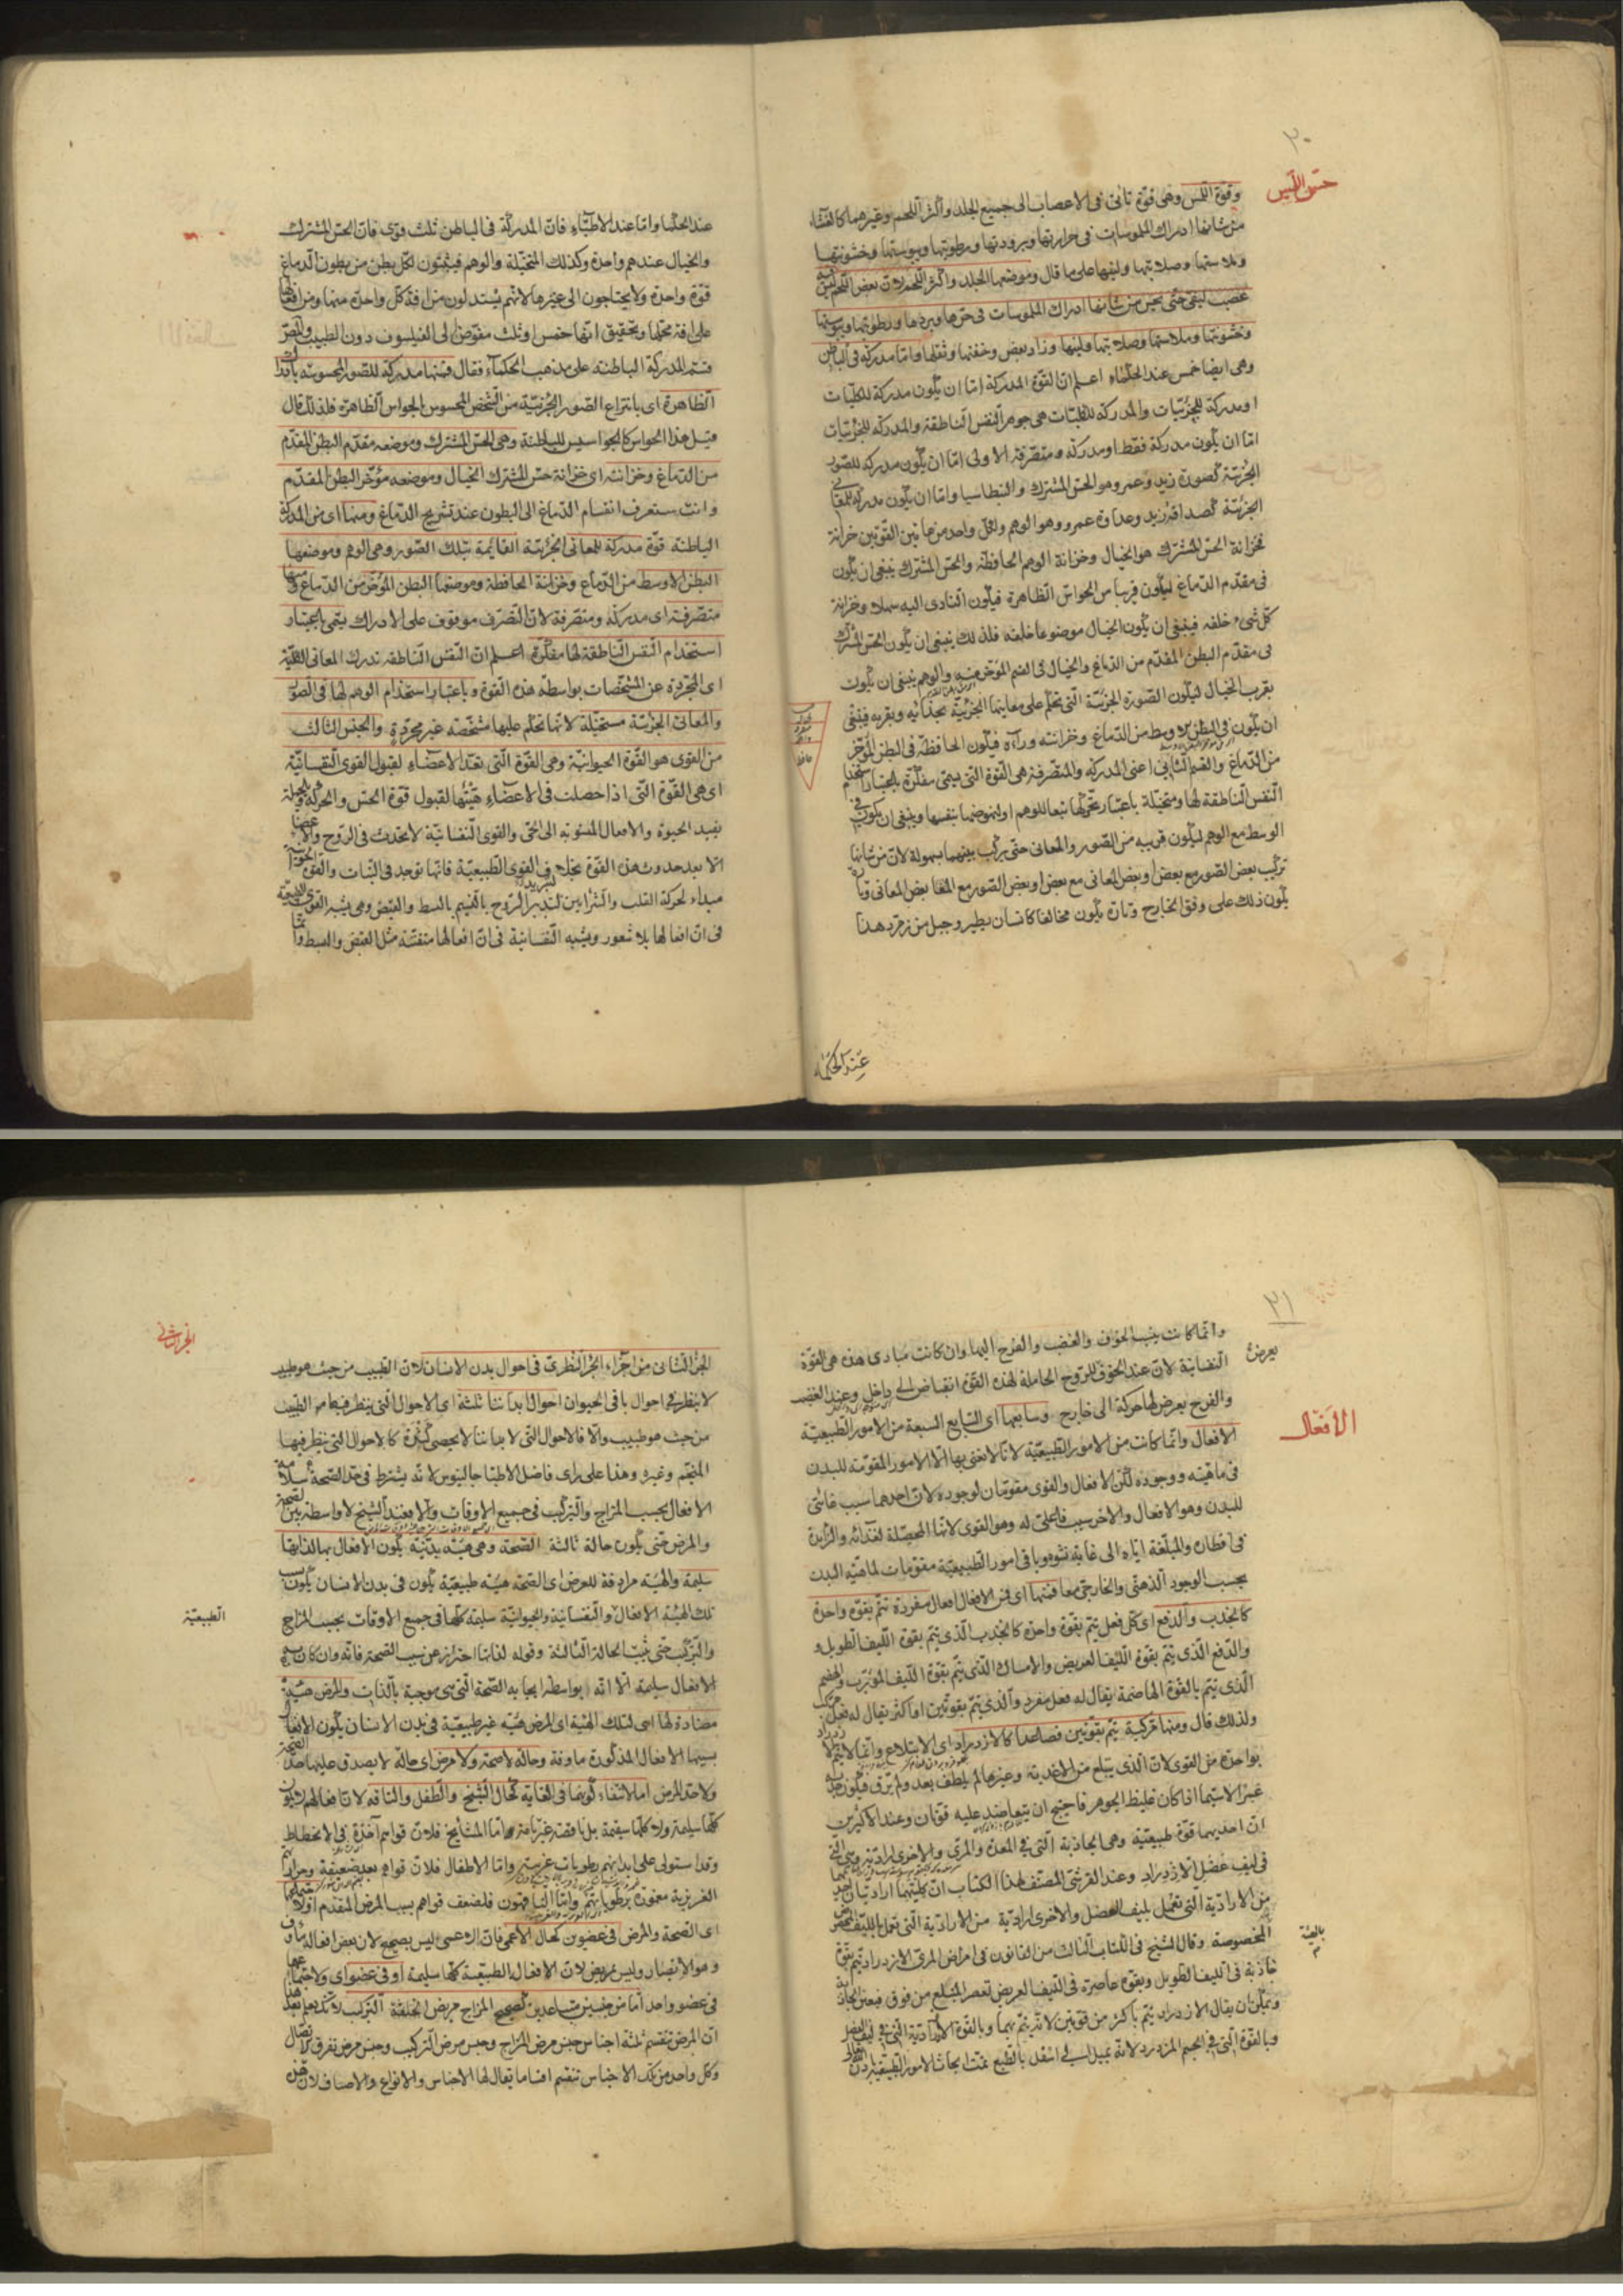 ٢٠
حس اللمس
وقوة اللمس وهى قوة تأتى فى الاعصاب الى جميع الجلد واكثر اللحم وغيرهما كالغشاء
من شانها ادراك الملموسات فى حرارتها وبرودتها ورطوبتها ويبوستها وخشونتها
وملاستها وصلابتها ولينها على ما قال وموضعها الجلد واكثر اللحم لان بعض اللحم ليس
عصب ليفى حتى يحس من شانها ادراك الملموسات فى حرها وبردها ورطوبتها ويبوستها
وخشونتها وملاستها وصلابتها ولينها وزاد بعض وخفتها وثقلها واما مدركة فى الباطن
وهى ايضا خمس عند الحكماء اعلم ان القوة المدركة اما ان يكون مدركة للكليات
او مدركة للجزئيات والمدركة للكليات هى جوهر النفس الناطقة والمدركة للجزئيات
اما ان يكون مدركة فقط او مدركة ومتصرفة الاولى اما ان يكون مدركة للصور
الجزئية كصورة زيد وعمرو وهو الحس المشترك والبنطاسيا واما ان يكون مدركة للمعانى
الجزئية كصداقة زيد وعداوة عمرو وهو الوهم ولكل واحد من هاتين القوتين خزانة
فخزانة الحس المشترك هو الخيال وخزانة الوهم الحافظة والحس المشترك ينبغى ان يكون
فى مقدم الدماغ ليكون قريبا من الحواس الظاهرة فيكون التادى اليه سهلا وخزانة
كل شىء خلفه فينبغى ان يكون الخيال موضوعا خلفه فلذلك ينبغى ان يكون الحس المشترك
فى مقدم البطن المقدم من الدماغ والخيال فى القسم المؤخر منه والوهم ينبغى ان يكون
بقرب الخيال ليكون الصورة الجزئية التى تحكم على معانيها الجزئية بحذائه وبقربه فينبغى
ان يكون فى البطن الاوسط من الدماغ وخزانته وراءه فيكون الحافظة فى البطن المؤخر
من الدماغ والقسم الثانى اعنى المدركة والمتصرفة هى القوة التى يسمى مفكرة باعتبار استخدام
النفس الناطقة لها ومتخيلة باعتبار تحركها تبعا للوهم او لنهوضها بنفسها وينبغى ان يكون فى
الوسط مع الوهم ليكون قريبه من الصور والمعانى حتى يركب بينهما بسهولة لان من شانها
تركيب بعض الصور مع بعض وبعض المعانى مع بعض او بعض الصور مع بعض المعانى وتارة
يكون ذلك على وفق الخارج وتارة يكون مخالفا كانسان يطير وجبل من زمرد هذا
عند الحكماء
عند الحكما واما عند الاطباء فان المدركة فى الباطن ثلث قوى فان الحس المشترك
والخيال عندهم واحدة وكذلك المتخيلة والوهم فيثبتون لكل بطن من بطون الدماغ
قوة واحدة ولا يحتاجون الى غيرها لانهم يستدلون من افة كل واحدة منها ومن افعالها
على افة محلها وتحقيق انها خمس او ثلث مفوض الى الفيلسوف دون الطبيب والمص
قسم المدركة الباطنة على مذهب الحكماء فقال فمنها مدركة للصور المحسوسة بالحواس
الظاهرة اى بانتزاع الصور الجزئية من الشخص المحسوس بالحواس الظاهرة فلذلك قال
قبل هذا الحواس كالجواسيس للباطنة وهى الحس المشترك وموضعه مقدم البطن المقدم
من الدماغ وخزانته اى خزانة حس المشترك الخيال وموضعه مؤخر البطن المقدم
وانت ستعرف انقسام الدماغ الى البطون عند تشريح الدماغ ومنها اى من المدركة
الباطنة قوة مدركة للمعانى الجزئية القائمة بتلك الصور وهى الوهم وموضعها
البطن الاوسط من الدماغ وخزانته الحافظة وموضعها البطن المؤخر من الدماغ ومنها
متصرفة اى مدركة ومتصرفة لان التصرف موقوف على الادراك يسمى باعتبار
استخدام النفس الناطقة لها مفكرة اعلم ان النفس الناطقة تدرك المعانى الكلية
اى المجردة عن المشخصات بواسطة هذه القوة وباعتبار استخدام الوهم لها فى الصور
والمعانى الجزئية متخيلة لانها تحكم عليها مشخصة غير مجردة والجنس الثالث
من القوى هو القوة الحيوانية وهى القوة التى تعد الاعضاء لقبول القوى النفسانية
اى هى القوة التى اذا حصلت فى الاعضاء هيئتها لقبول قوة الحس والحركة وبالجملة
يفيد الحيوة والافعال المنسوبة الى الحى والقوى النفسانية لا تحدث فى الروح والاعضا
الا بعد حدوث هذه القوة بخلاف القوى الطبيعية فانها توجد فى النبات والقوة الحيوانية
مبداء لحركة القلب والشرايين لتدبير الروح بالنسيم بالبسط والقبض وهى يشبه القوى الطبيعية
فى ان افعالها بلا شعور ويشبه النفسانية فى ان افعالها متفننة مثل القبض والبسط
٢١
يعرض
وانما كانت ينسب الخوف والغضب والفرح اليها وان كانت مبادى هذه هى القوة
النفسانية لان عند الخوف للروح الحاملة لهذه القوة انقباض الى داخل وعند الغضب
والفرح يعرض لها حركة الى خارج وسابعها اى السابع السبعة من الامور الطبيعية
الافعال
الافعال وانما كانت من الامور الطبيعية لانا لا نعنى بها الا الامور المقومة للبدن
فى ماهيته ووجوده لكن الافعال والقوى مقومتان لوجوده لان احدهما سبب غائى
للبدن وهو الافعال والاخر سبب فاعلى له وهو القوى لانها المحصلة لغذائه والزايدة
فى اقطاره والمبلغة اياه الى غاية نشوه وباقى امور الطبيعية مقومات لماهية البدن
بحسب الوجود الذهنى والخارجى معا فمنها اى فمن الافعال افعال مفردة تتم بقوة واحدة
كالجذب والدفع اى كل فعل يتم بقوة واحدة كالجذب الذى يتم بقوة الليف الطويل و
والدفع الذى يتم بقوة الليف العريض والامساك الذى يتم بقوة الليف المورب والهضم
الذى يتم بالقوة الهاضمة يقال له فعل مفرد والذى يتم بقوتين او اكثر يقال له فعل مركب
ولذلك قال ومنها مركبة يتم بقوتين فصاعدا كالازدراد اى الابتلاع وانما لا يتم
بواحدة من القوى لان الذى يبتلع من الاغذية وغيرها لم يلطف بعد ولم يرق فيكون جذبه
عسرا لاسيما اذا كان غليظ الجوهر فاحتيج ان يتعاضد عليه قوتان وعند الاكثرين
ان احديهما قوة طبيعية وهى الجاذبة التى فى المعدة والمرى والاخرى ارادية وهى التى
فى ليف عضل الازدراد وعند القرشى المصنف لهذا الكتاب ان كليتهما اراديتان احديهما
من الارادية التى تعمل بليف العضل والاخرى ارادية من الارادية التى تعمل بالليف
المخصوصة وقال الشيخ فى الكتاب الثالث من القانون فى امراض المرى الازدراد يتم بقوة
جاذبة فى الليف الطويل وبقوة عاصرة فى الليف العريض تعصر المبتلع من فوق فيعين الجاذبة
ويمكن ان يقال الازدراد يتم باكثر من قوتين لانه يتم بهما وبالقوة الارادية التى فى ليف العضل
وبالقوة التى فى الجسم المزدرد لانه يميل الى اسفل بالطبع تمت ابحاث الامور الطبيعية
الجزء الثانى
الجزء الثانى من اجزاء الجزء النظرى فى احوال بدن الانسان لان الطبيب من حيث هو طبيب
لا ينظر فى احوال باقى الحيوان احوال ابداننا ثلثة اى الاحوال التى ينظر فيها من الطبيب
من حيث هو طبيب والا فالاحوال التى لابداننا لا يحصى كثرة كالاحوال التى ينظر فيها
المنجم وغيره وهذا على راى فاضل الاطبا جالينوس لانه يشترط فى حد الصحة سلامة
الافعال بحسب المزاج والتركيب فى جميع الاوقات والا فعند الشيخ لا واسطة بين الصحة
والمرض حتى يكون حالة ثالثة الصحة وهى هيئة بدنية يكون الافعال بها لذاتها
سليمة والهيئة مرادفة للعرض اى الصحة هيئة طبيعية يكون فى بدن الانسان يكون بسبب
الطبيعية
تلك الهيئة الافعال والنفسانية والحيوانية سليمة كلها فى جميع الاوقات بحسب المزاج
والتركيب حتى يثبت الحالة الثالثة وقوله لذاتها احتراز عن سبب الصحة فانه وان كان به
الافعال سليمة الا انه بواسطة ايجابه الصحة التى هى موجبة بالذات والمرض هيئة
مضادة لها اى لتلك الهيئة اى المرض هيئة غير طبيعية فى بدن الانسان يكون الافعال
بسببها الافعال المذكورة ماوفة وحالة لا صحة ولا مرض اى حالة لا يصدق عليها حد الصحة
ولا حد المرض اما لانتفاء كونهما فى الغاية كحال الشيخ والطفل والناقه لان افعالهم لا يكون
كلها سليمة ولا كلها سقيمة بل ناقصة غير تامة اما المشايخ فلان قواهم آخذة فى الانحطاط
وقد استولى على ابدانهم رطوبات غريبة واما الاطفال فلان قواهم بعد ضعيفة وحرارتهم
الغريزية مغمورة برطوباتهم واما الناقهون فلضعف قواهم بسبب المرض المتقدم او لاجتماعهما
اى الصحة والمرض فى عضوين كحال الاعمى فان الاعمى ليس بصحيح لان بعض افعاله ماوف
وهو الابصار وليس بمريض لان الافعال الطبيعية كلها سليمة او فى عضو اى ولاجتماعهما
فى عضو واحد اما من جنسين متباعدين كصحيح المزاج مريض الخلقة التركيب
ان المرض تنقسم ثلثة اجناس جنس مرض المزاج وجنس مرض التركيب وجنس مرض تفرق الاتصال
وكل واحد من تلك الاجناس تنقسم اقساما يقال لها الاجناس والانواع والاصناف لان